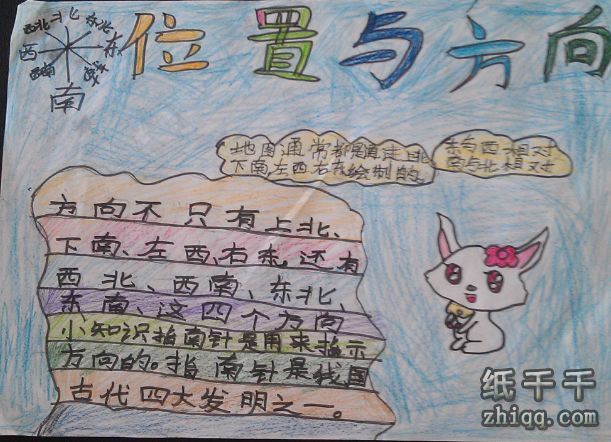 位置与方向
西北 北 东北
西 东
西南 东南
南
地图通常都是 上北
下南左西右东绘制的。
东与西相对
南与北相对
方向不只有上北、
下南、左西、右东。还有
西北、西南、东北、
东南、这四个方向
小知识指南针是用来指示
方向的。指南针是我国
古代四大发明之一。
纸千千
zhiqq.com